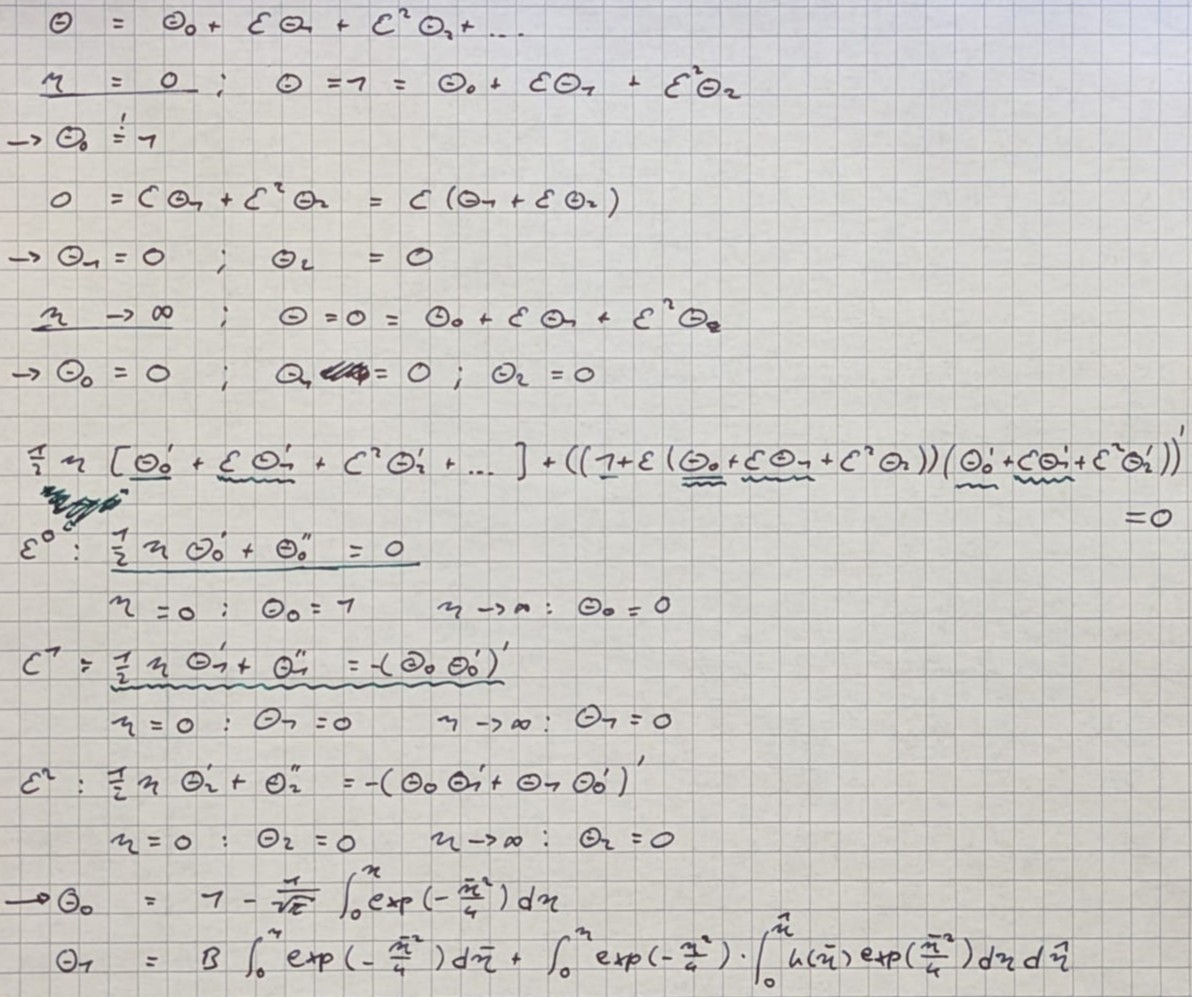 Θ = Θ₀ + εΘ₁ + ε²Θ₂ + ...
η = 0 ; Θ = 1 = Θ₀ + εΘ₁ + ε²Θ₂
→ Θ₀ =! 1
0 = εΘ₁ + ε²Θ₂ = ε (Θ₁ + εΘ₂)
→ Θ₁ = 0 ; Θ₂ = 0
η → ∞ ; Θ = 0 = Θ₀ + εΘ₁ + ε²Θ₂
→ Θ₀ = 0 ; Θ₁ = 0 ; Θ₂ = 0
½ η [Θ₀' + εΘ₁' + ε²Θ₂' + ...] + ((1 + ε(Θ₀ + εΘ₁ + ε²Θ₂))(Θ₀' + εΘ₁' + ε²Θ₂'))'
= 0
ε⁰ : ½ η Θ₀' + Θ₀'' = 0
η = 0 : Θ₀ = 1 η → ∞ : Θ₀ = 0
ε¹ : ½ η Θ₁' + Θ₁'' = -(Θ₀ Θ₀')'
η = 0 : Θ₁ = 0 η → ∞ : Θ₁ = 0
ε² : ½ η Θ₂' + Θ₂'' = -(Θ₀ Θ₁' + Θ₁ Θ₀')'
η = 0 : Θ₂ = 0 η → ∞ : Θ₂ = 0
→ Θ₀ = 1 - 1/√π ∫₀^η exp(-η̄²/4) dη
Θ₁ = B ∫₀^η exp(-η̄²/4) dη̄ + ∫₀^η exp(-η̂²/4) · ∫₀^η̂ h(η̄) exp(η̄²/4) dη dη̂